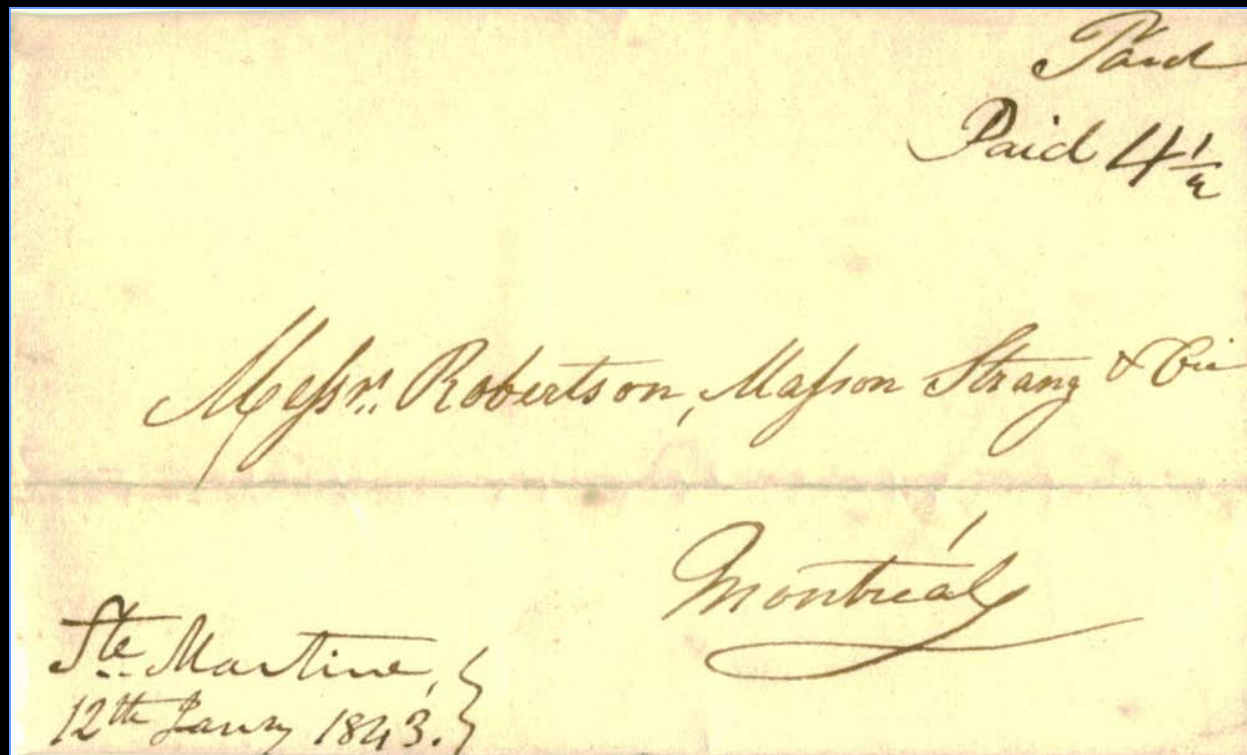 Paid
Paid 4 1/2
Messrs. Robertson, Masson Strang & Cie
Montréal
Ste. Martine,
12th Jany 1843.